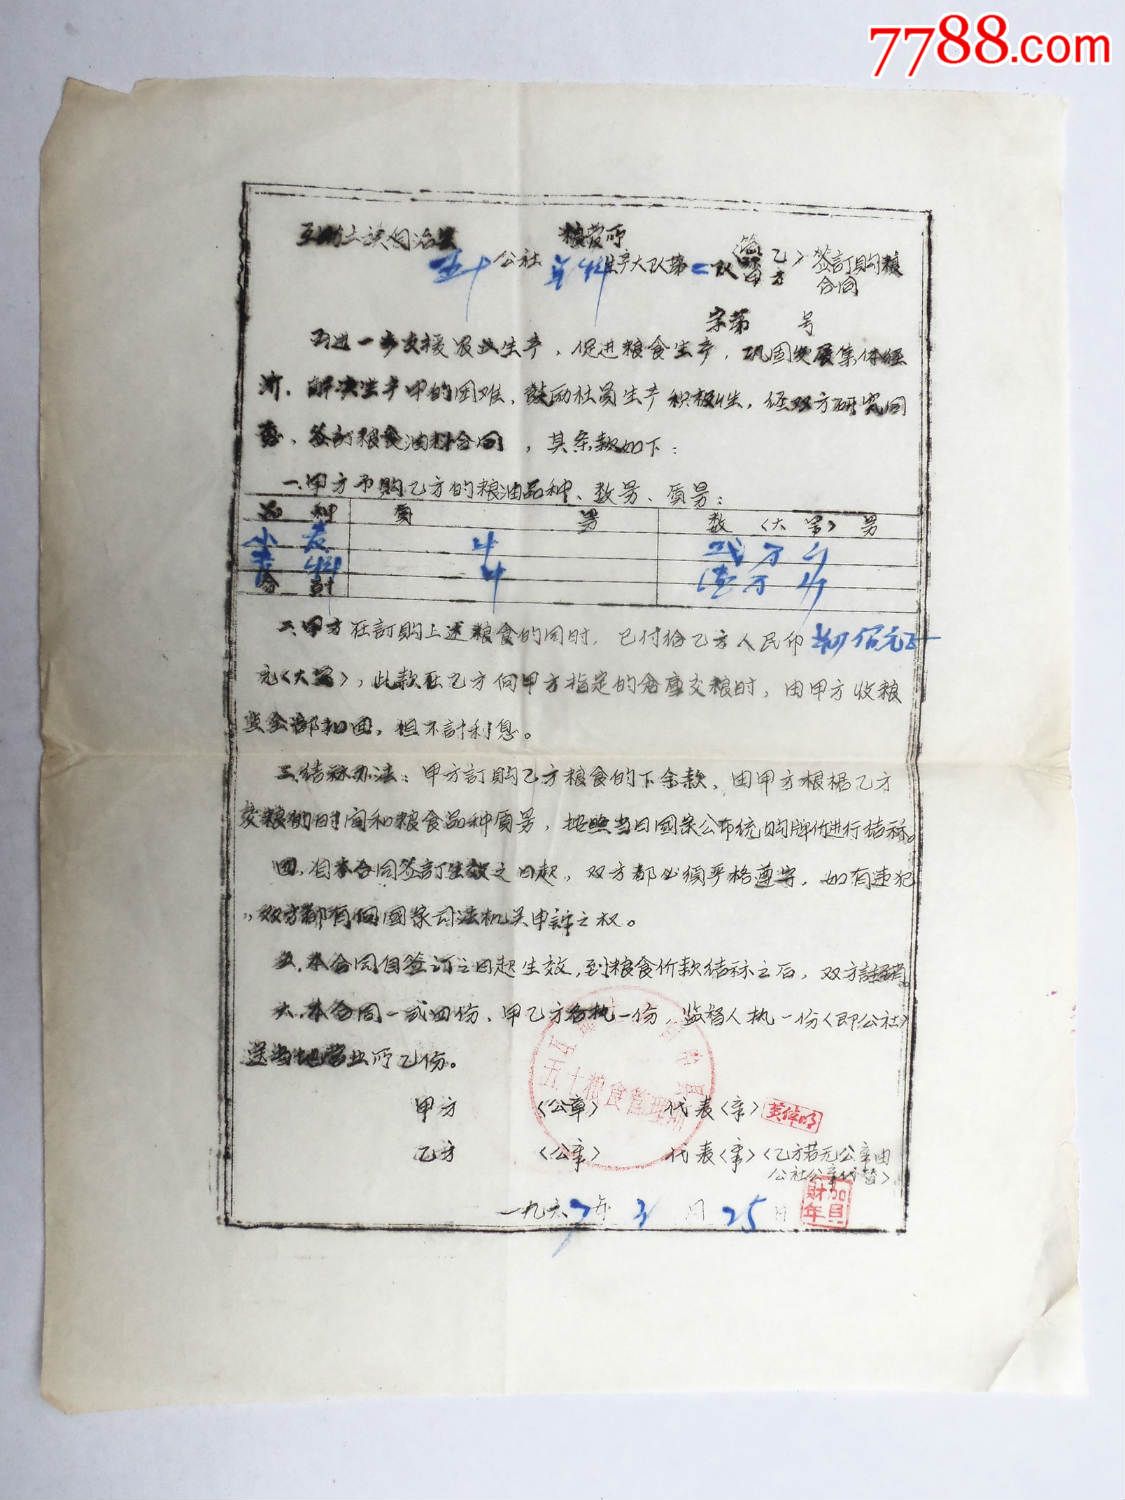 7788.com
互助土族自治县 粮管所
五十公社 生产大队第二队 (简称 乙方 甲方) 签訂购粮合同
字第 号
为进一步支援农业生产，促进粮食生产，巩固发展集体经
济，解决生产中的困难，鼓励社员生产积极性，经双方研究同
意，签訂粮食油料合同，其条款如下：
一、甲方予购乙方的粮油品种、数另、质另：
品种 质另 数〈大写〉另
小麦 中 弍万斤
青稞 中 壹万斤
合計
二、甲方在訂购上述粮食的同时，已付给乙方人民币 佰元正
元〈大写〉，此款在乙方向甲方指定的仓库交粮时，由甲方收粮
全部扣回，但不計利息。
三、结标办法：甲方訂购乙方粮食的下余款，由甲方根据乙方
交粮的时间和粮食品种质另，按照当日国家公布统购牌价进行结标。
四、自本合同签訂生效之日起，双方都必须严格遵守，如有违犯
，双方都有向国家司法机关申訴之权。
五、本合同自签订之日起生效，到粮食价款结标之后，双方註銷。
六、本合同一式四份，甲乙方各执一份，监督人执一份〈即公社〉
送当地营业所乙份。
五十粮食管理所
甲方 〈公章〉 代表〈章〉
乙方 〈公章〉 代表〈章〉〈乙方若无公章由
公社公章代替〉
一九六7年3月25日